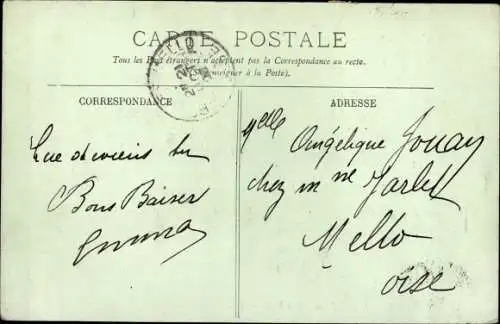 CARTE POSTALE
Tous les Pays étrangers n'acceptent pas la Correspondance au recto.
(Se renseigner à la Poste).
MELLO
CORRESPONDANCE
ADRESSE
Que deviens tu
Bons Baiser
Emma
Melle Angélique Jouay
chez m me Jarlet
Mello
oise